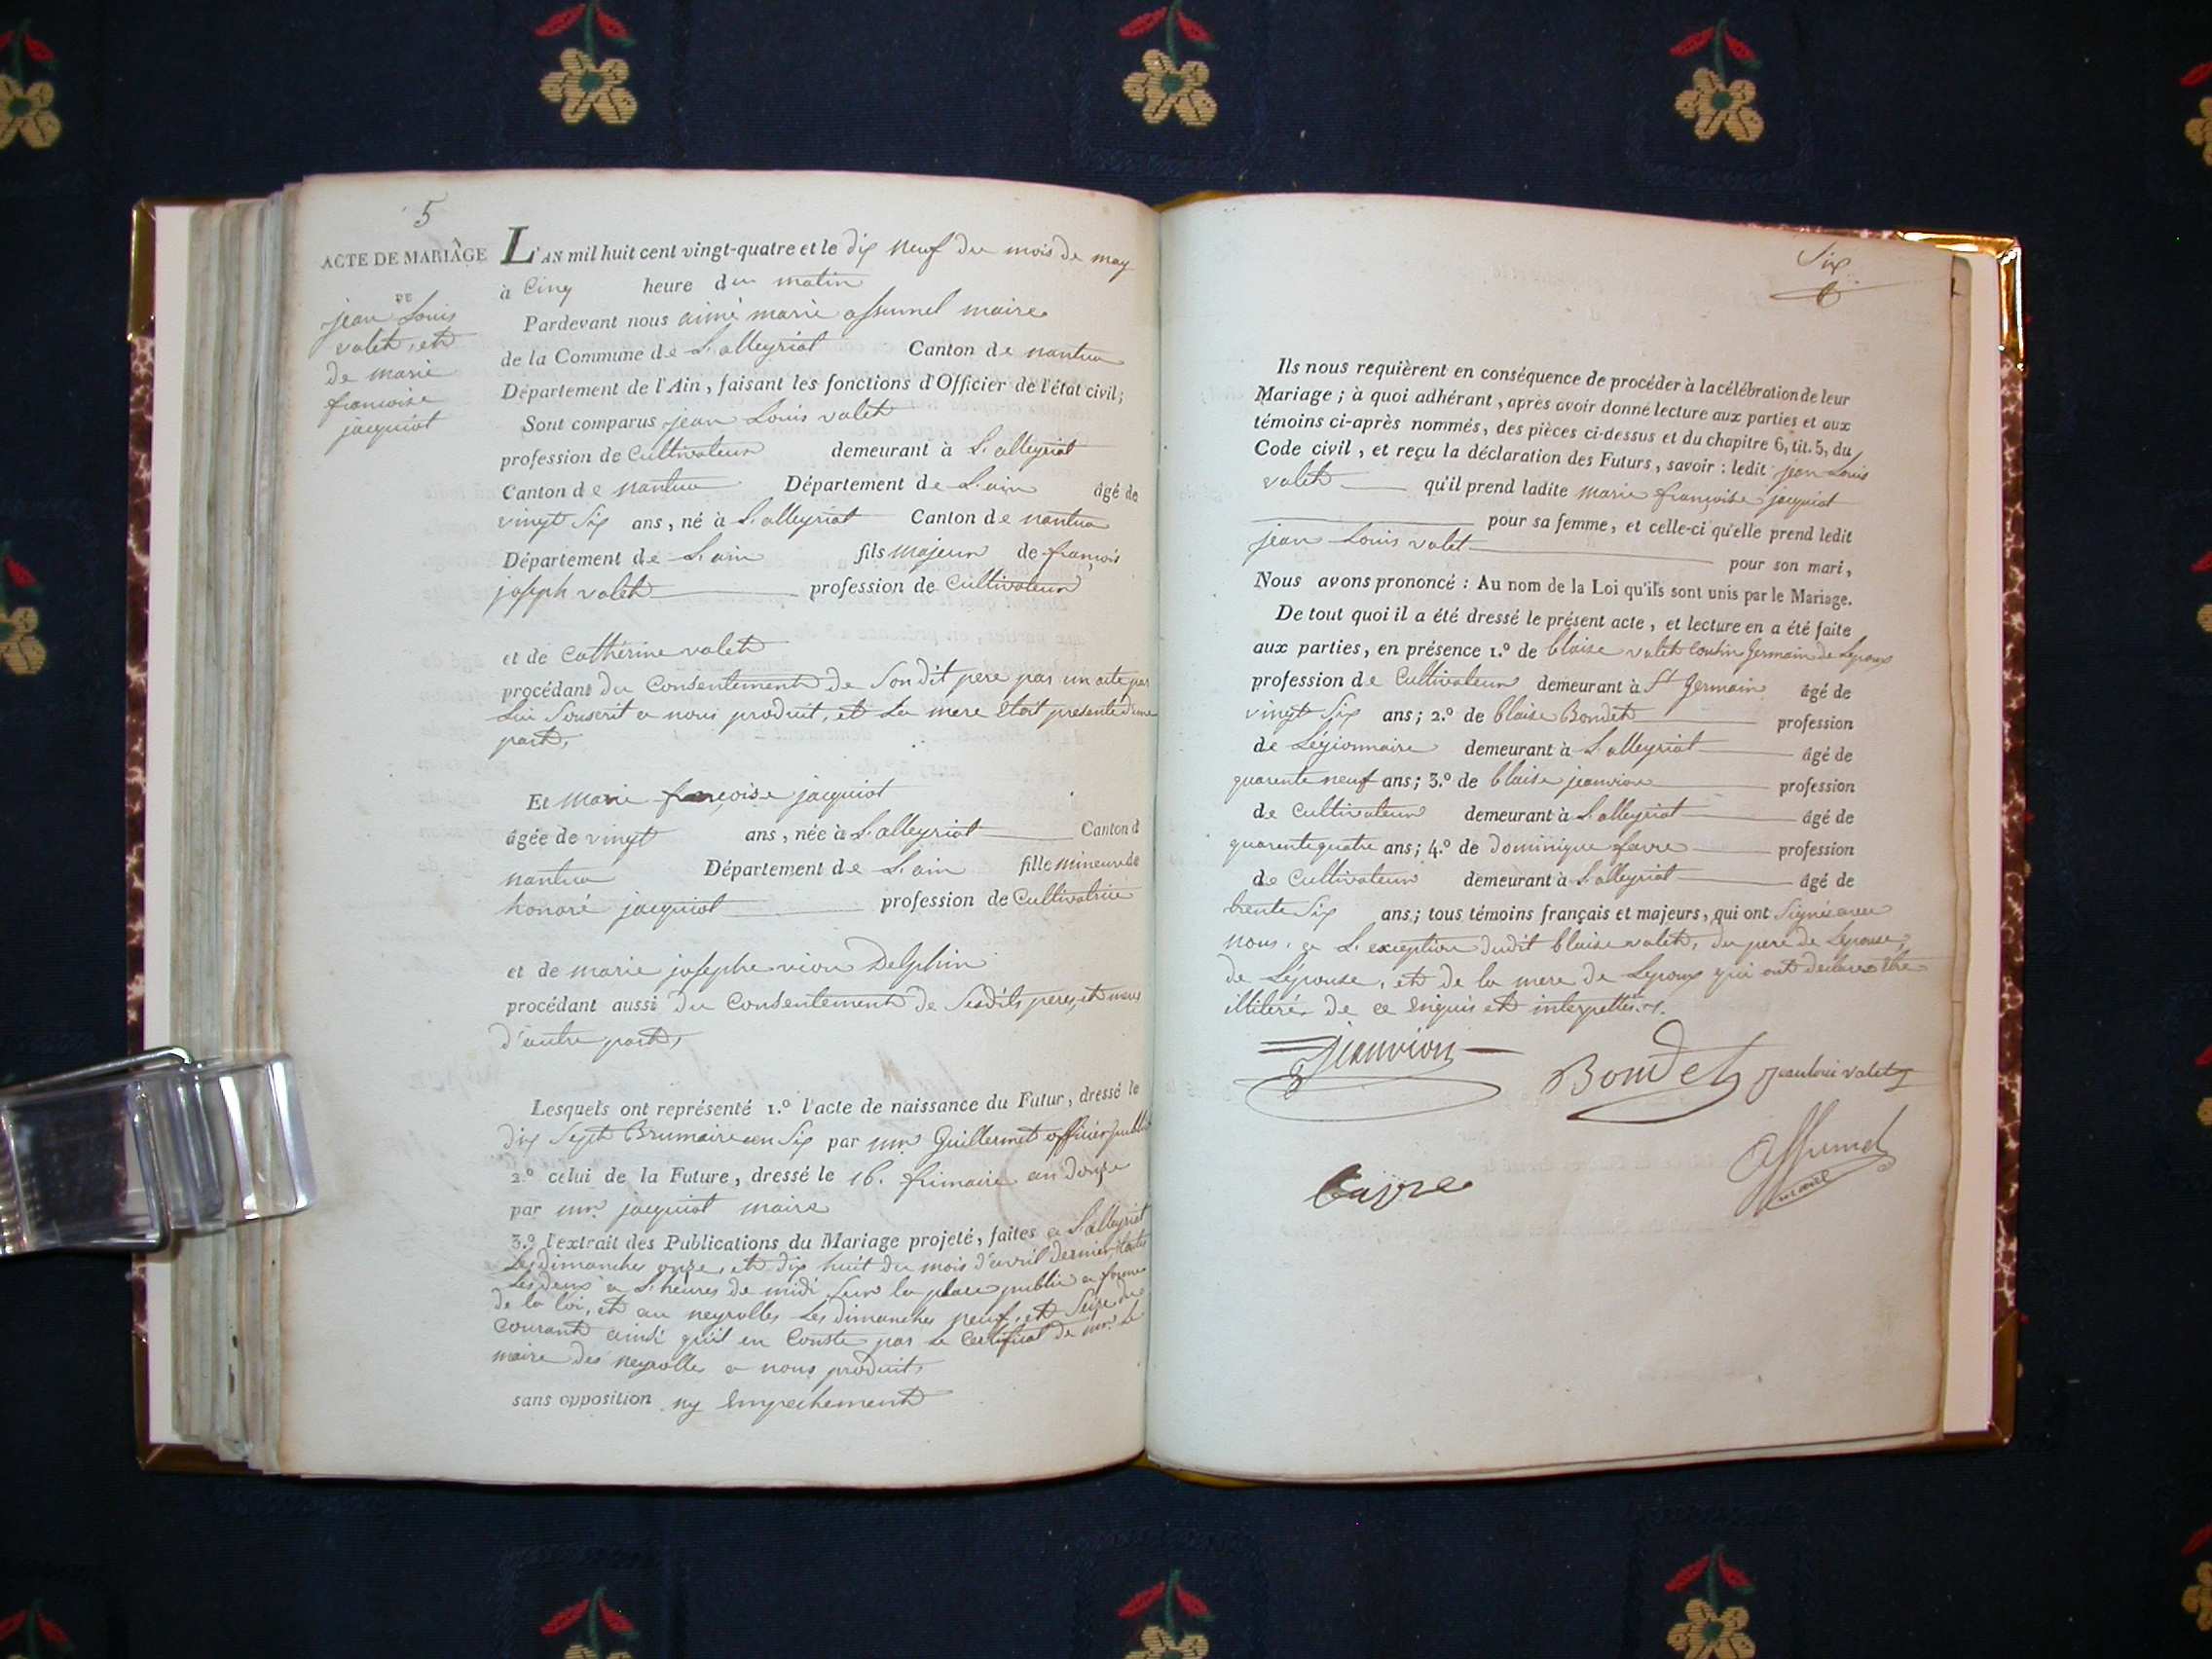 5
ACTE DE MARIAGE
DE
jean Louis
valet, et
de marie
francoise
jacquiot
L'AN mil huit cent vingt-quatre et le dix neuf du mois de may
à Cinq heure du matin
Pardevant nous aimé marie assumel maire
de la Commune de L'alleyriat Canton de nantua
Département de l'Ain, faisant les fonctions d'Officier de l'état civil;
Sont comparus jean Louis valet
profession de Cultivateur demeurant à L'alleyriat
Canton de nantua Département de L'ain âgé de
vingt Six ans, né à L'alleyriat Canton de nantua
Département de L'ain fils majeur de françois
joseph valet profession de Cultivateur
et de Cathérine valet
procédant du Consentement de Son dit pere par un acte par
Lui Souscrit a nous produit, et La mere état presente d'une
part,
Et marie françoise jacquiot
âgée de vingt ans, née à L'alleyriat Canton d
nantua Département de L'ain fille mineure de
honoré jacquiot profession de Cultivatrice
et de marie josephe vion Delphin
procédant aussi du Consentement de Sesdits peres, et mere
d'autre part,
Lesquels ont représenté 1.º l'acte de naissance du Futur, dressé le
dix Sept Brumaire an Six par mr. Guillermet officier public
2.º celui de la Future, dressé le 16. frimaire an douze
par mr. jacquiot maire
3.º l'extrait des Publications du Mariage projeté, faites a L'alleyriat
Les dimanches onze, et dix huit du mois d'avril dernier, toutes
Les deux a L'heures de midi Sur la place public a forme
de la loi, et au neyrolles Les dimanches neuf, et Seize du
Courant ainsi qu'il en Conste par Le Certificat de mr. Le
maire des neyrolles a nous produit,
sans opposition ny Empechement
Six
6
Ils nous requièrent en conséquence de procéder à la célébration de leur
Mariage; à quoi adhérant, après avoir donné lecture aux parties et aux
témoins ci-après nommés, des pièces ci-dessus et du chapitre 6, tit. 5, du
Code civil, et reçu la déclaration des Futurs, savoir: ledit jean Louis
valet qu'il prend ladite marie françoise jacquiot
pour sa femme, et celle-ci qu'elle prend ledit
jean Louis valet
pour son mari,
Nous avons prononcé: Au nom de la Loi qu'ils sont unis par le Mariage.
De tout quoi il a été dressé le présent acte, et lecture en a été faite
aux parties, en présence 1.º de blaise valet Cousin Germain de Lepoux
profession de Cultivateur demeurant à St Germain âgé de
vingt Six ans; 2.º de blaise Bondet profession
de Légionnaire demeurant à L'alleyriat âgé de
quarente neuf ans; 3.º de blaise jeanvion profession
de Cultivateur demeurant à L'alleyriat âgé de
quarente quatre ans; 4.º de Dominique favre profession
de Cultivateur demeurant à L'alleyriat âgé de
trente Six ans; tous témoins français et majeurs, qui ont Signé avec
nous. a L'exception dudit blaise valet, du pere de Lepouse,
de Lépouse, et de la mere de Lepoux qui ont declare être
illiteré de ce Enquis et interpettés.
jeanvion
Bondet
jean louis valet
favre
Assumel
maire